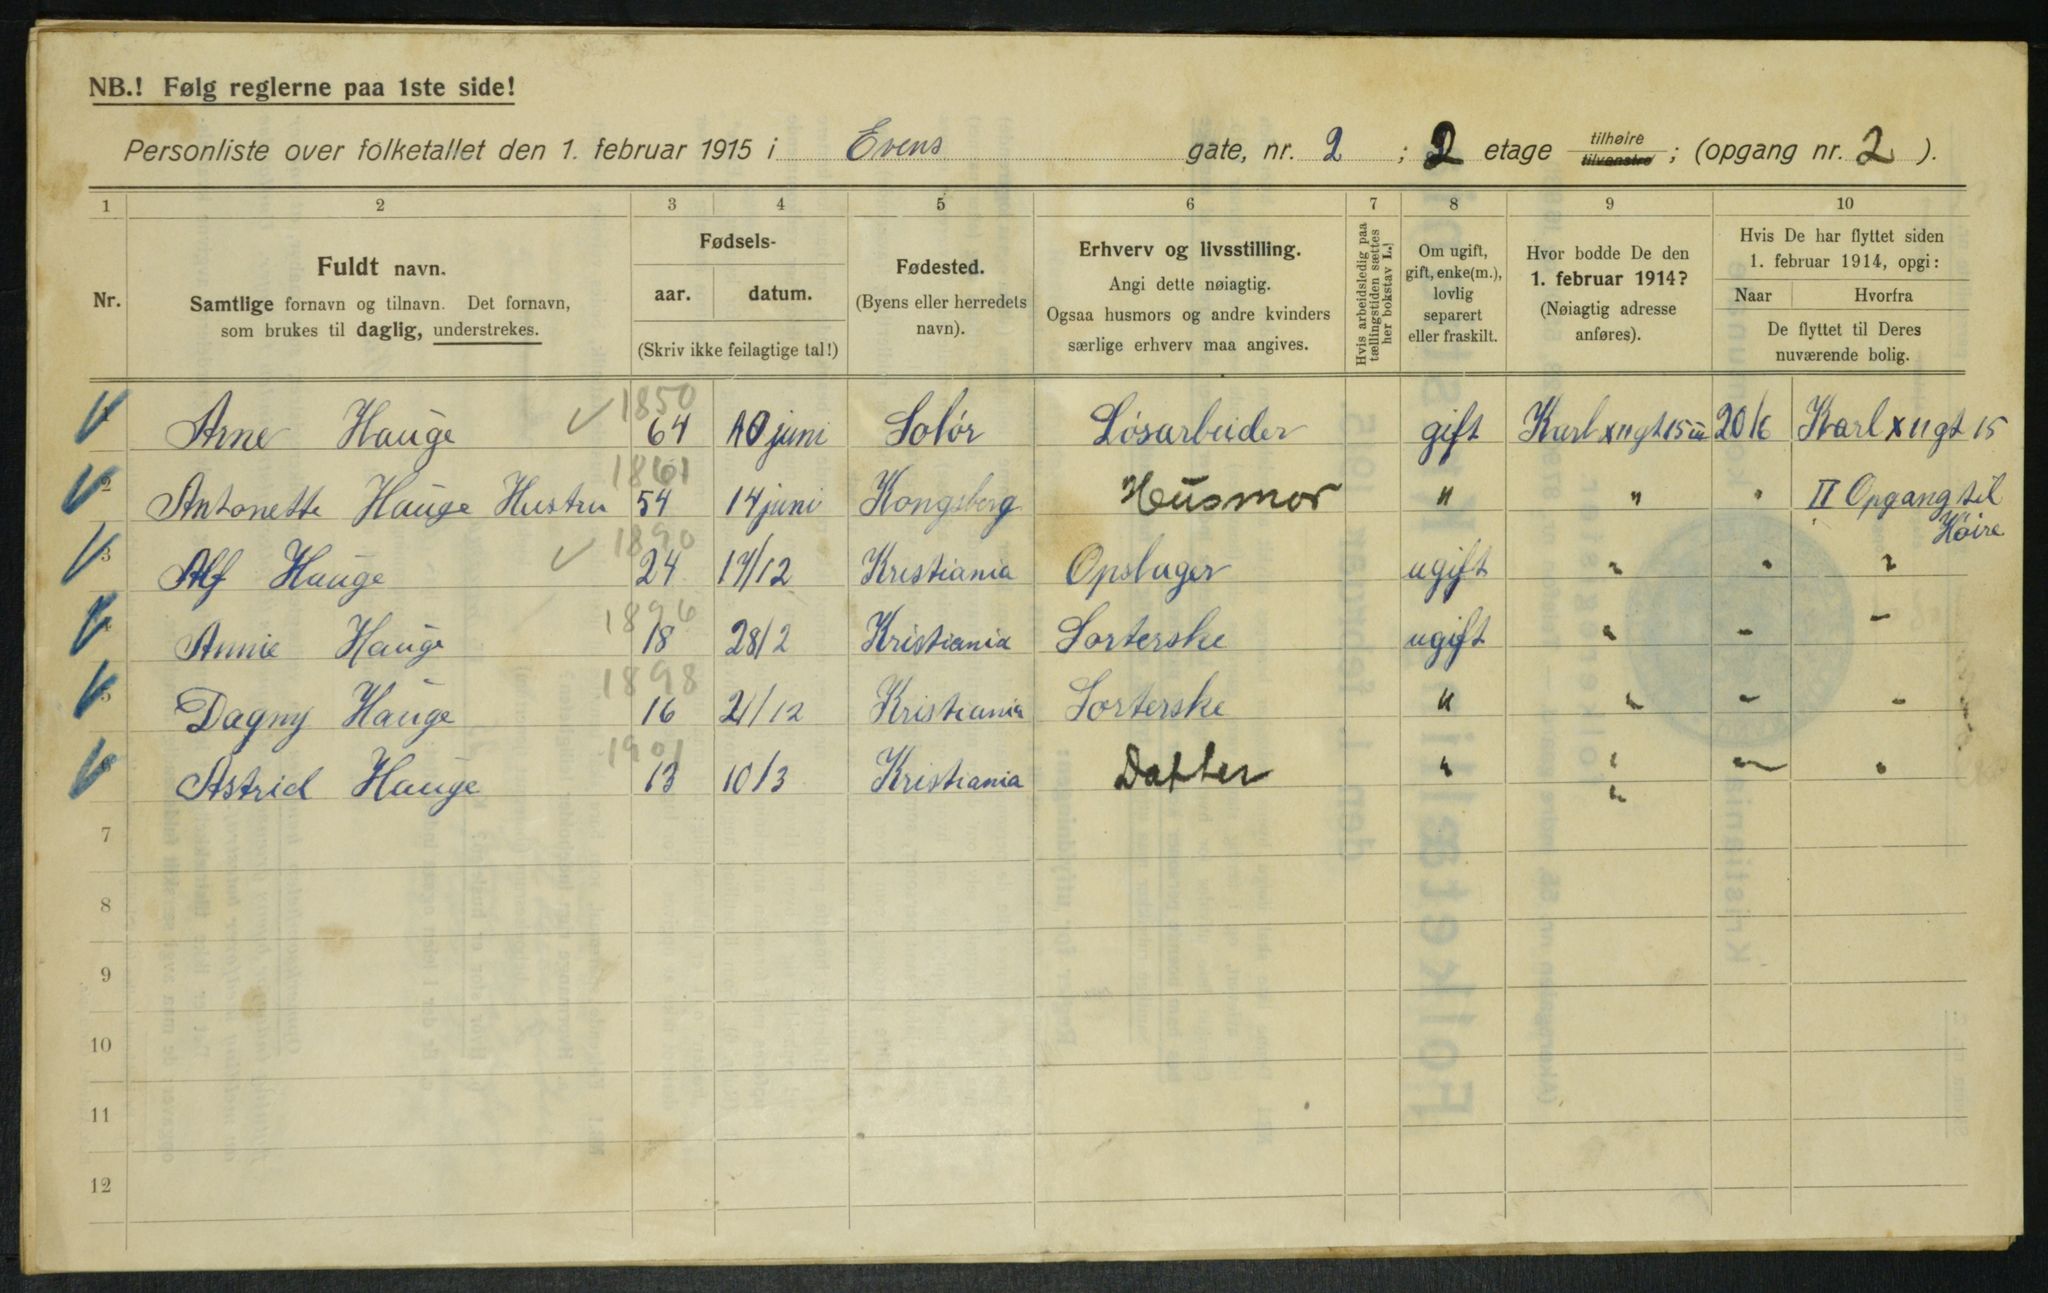 NB.! Følg reglerne paa 1ste side!
Personliste over folketallet den 1. februar 1915 i Evens gate, nr. 2 ; 2 etage tilhøire tilvenstre ; (opgang nr. 2 ).
1 2 3 4 5 6 7 8 9 10
Nr.
Fuldt navn.
Samtlige fornavn og tilnavn. Det fornavn,
som brukes til daglig, understrekes.
Fødsels-
aar. datum.
(Skriv ikke feilagtige tal!)
Fødested.
(Byens eller herredets
navn).
Erhverv og livsstilling.
Angi dette nøiagtig.
Ogsaa husmors og andre kvinders
særlige erhverv maa angives.
Hvis arbeidsledig paa
tællingstiden sættes
her bokstav L.!
Om ugift,
gift, enke(m.),
lovlig
separert
eller fraskilt.
Hvor bodde De den
1. februar 1914?
(Nøiagtig adresse
anføres).
Hvis De har flyttet siden
1. februar 1914, opgi:
Naar Hvorfra
De flyttet til Deres
nuværende bolig.
Arne Hauge 1850 64 10 juni Solør Løsarbeider gift Karl XII gt 15 III 20/6 Karl XII gt 15
2 Antonette Hauge Hustru 1861 54 14 juni Kongsberg Husmor " " " II Opgang til
Høire
3 Alf Hauge 1890 24 17/12 Kristiania Opsluger ugift " " "
4 Annie Hauge 1896 18 28/2 Kristiania Sorterske ugift " " "
5 Dagny Hauge 1898 16 21/12 Kristiania Sorterske " " " "
6 Astrid Hauge 1901 13 10/3 Kristiania Datter " " " "
"
7
8
9
10
11
12